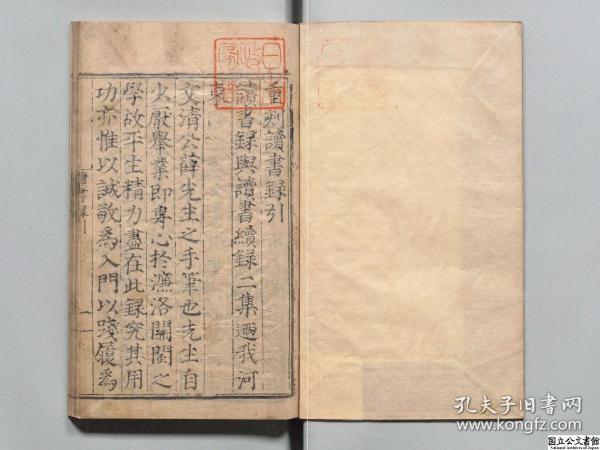 重刻讀書錄引
讀書錄與讀書續錄二集迺我河
東
文清公薛先生之手筆也先生自
少厭舉業即專心於濂洛關閩之
學故平生精力盡在此錄究其用
功亦惟以誠敬為入門以踐履為
讀書錄引
孔夫子旧书网
www.kongfz.com
国立公文書館
National Archives of Japan